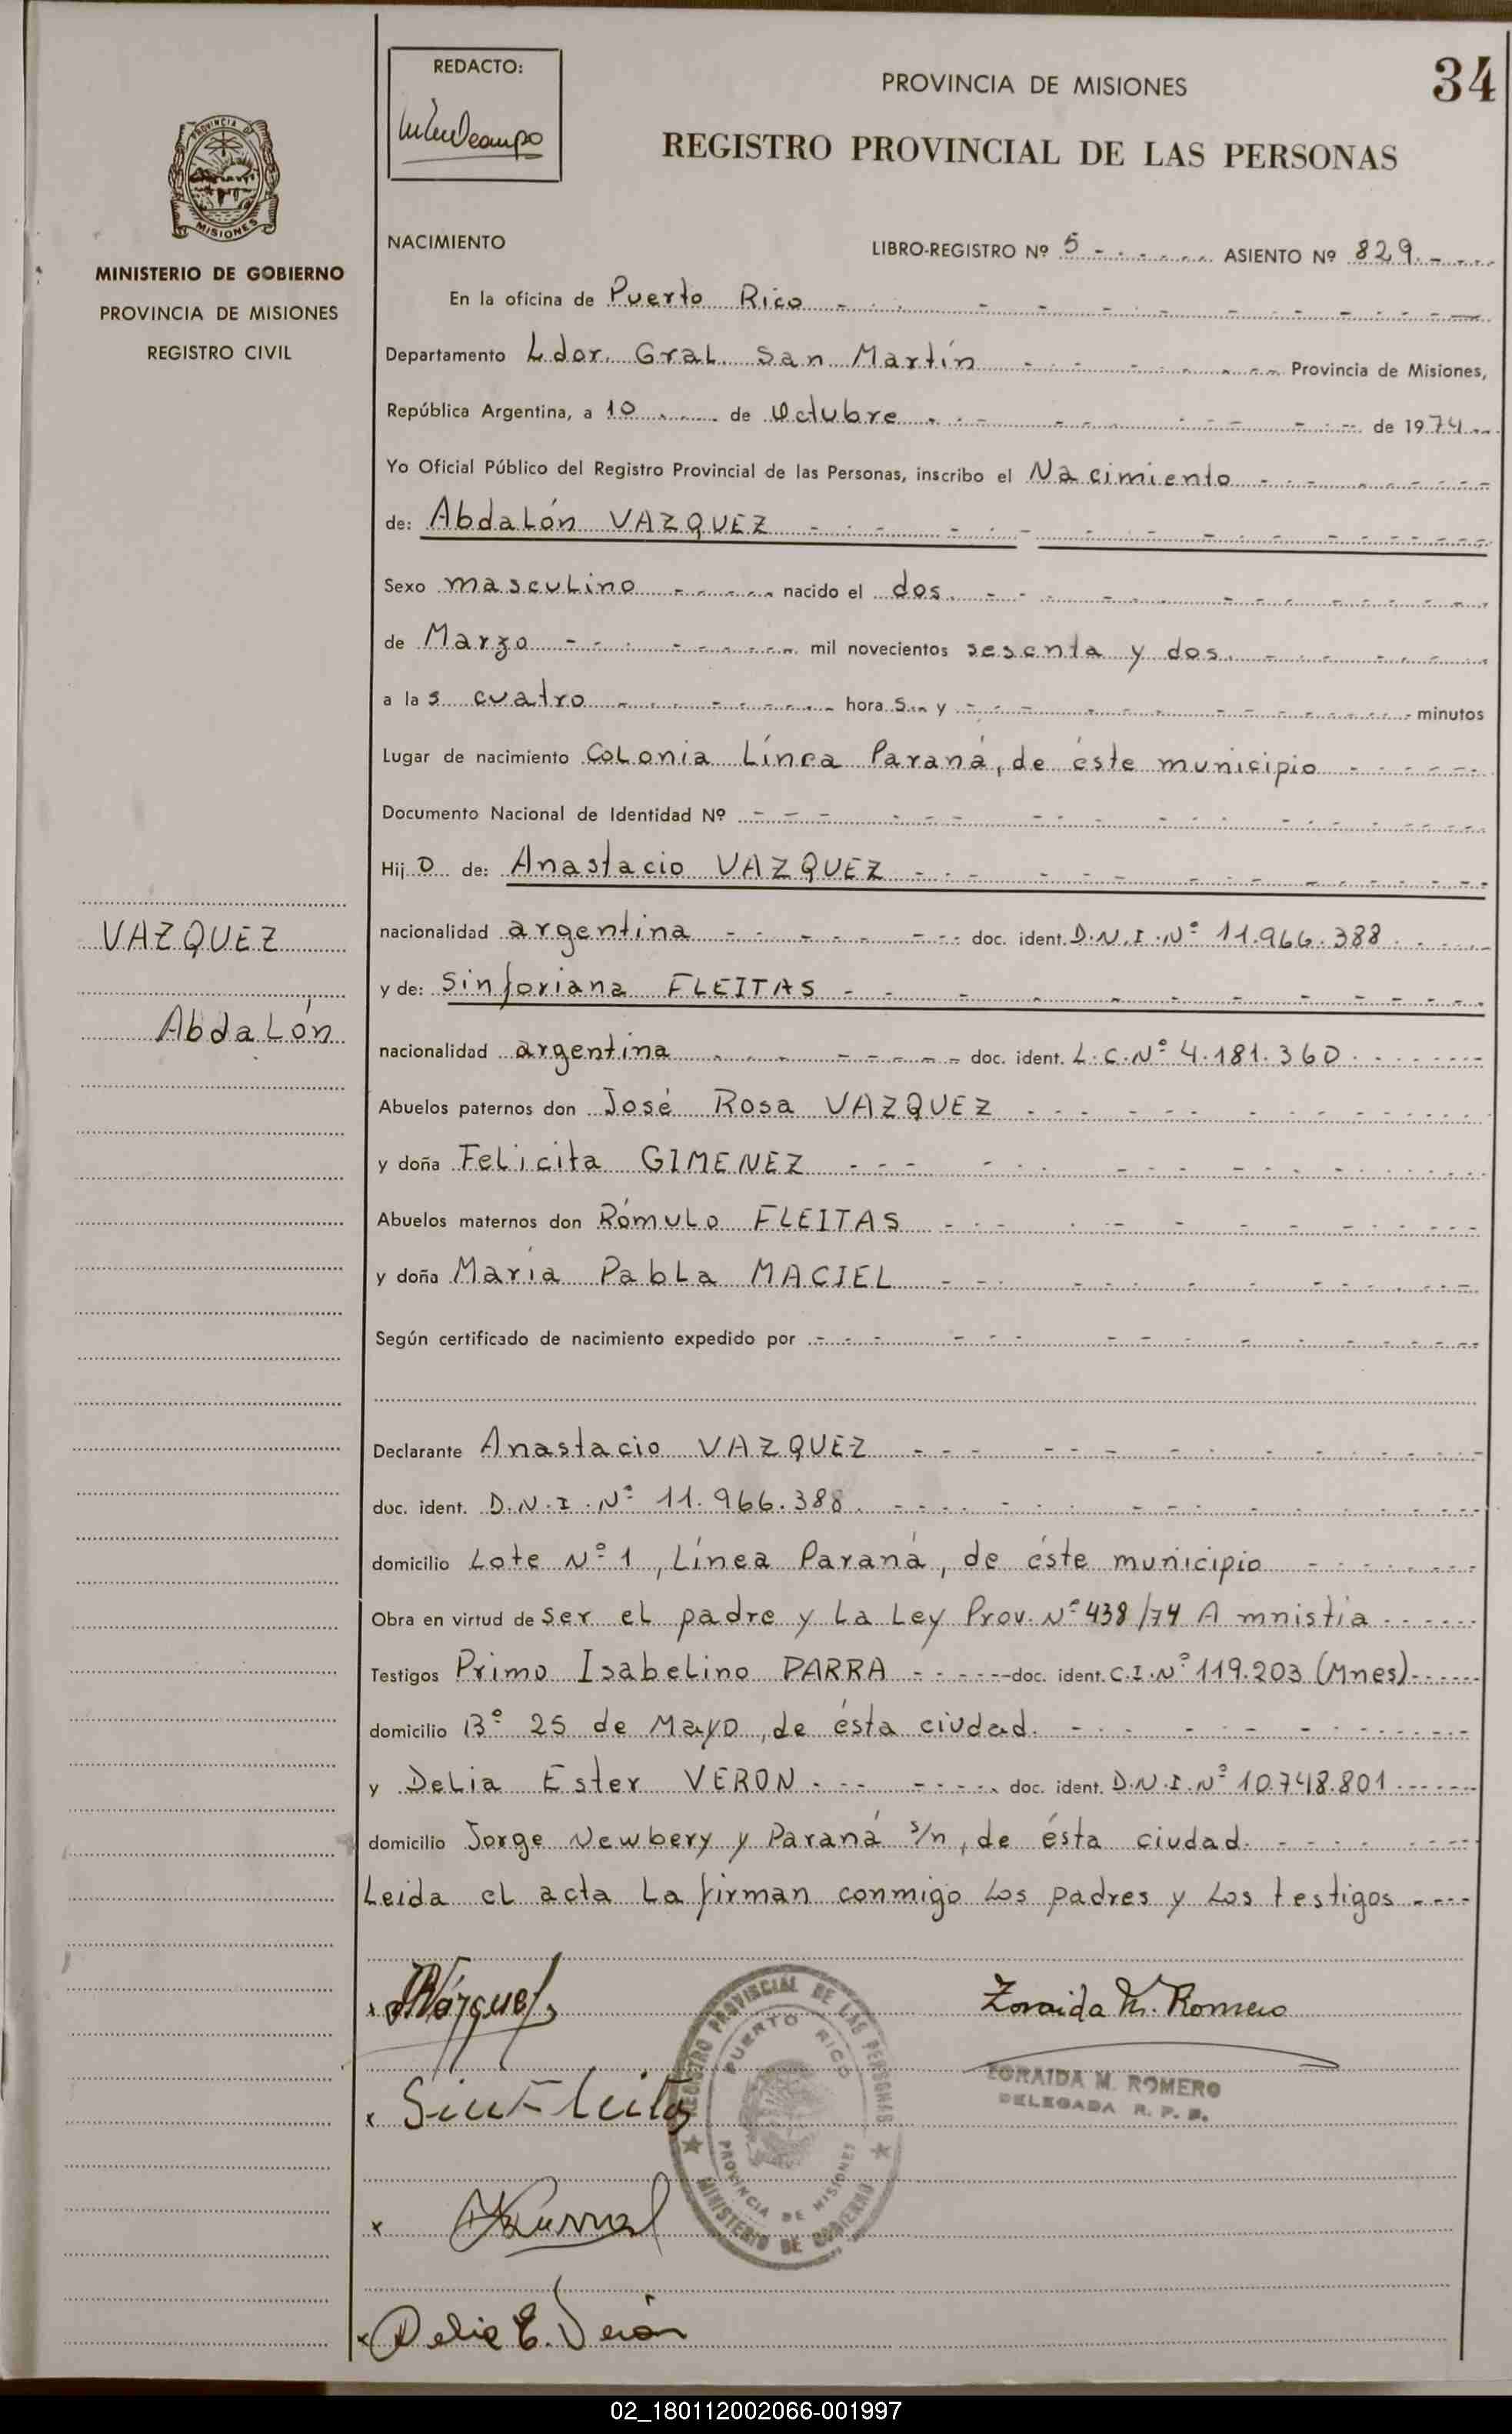 REDACTO:
PROVINCIA DE MISIONES
34
REGISTRO PROVINCIAL DE LAS PERSONAS
PROVINCIA DE
MISIONES
MINISTERIO DE GOBIERNO
PROVINCIA DE MISIONES
REGISTRO CIVIL
NACIMIENTO
LIBRO-REGISTRO Nº 5 ASIENTO Nº 829
En la oficina de Puerto Rico
Departamento Ldor. Gral. San Martín Provincia de Misiones,
República Argentina, a 10 de Octubre de 1974
Yo Oficial Público del Registro Provincial de las Personas, inscribo el Nacimiento
de: Abdalón VAZQUEZ
Sexo masculino nacido el dos
de Marzo mil novecientos sesenta y dos
a las cuatro horas y minutos
Lugar de nacimiento Colonia Línea Paraná, de éste municipio
Documento Nacional de Identidad Nº
Hijo de: Anastacio VAZQUEZ
nacionalidad argentina doc. ident. D.N.I. Nº 11.966.388
y de: Sinforiana FLEITAS
nacionalidad argentina doc. ident. L.C. Nº 4.181.360
Abuelos paternos don José Rosa VAZQUEZ
y doña Felicita GIMENEZ
Abuelos maternos don Rómulo FLEITAS
y doña María Pabla MACIEL
Según certificado de nacimiento expedido por
VAZQUEZ
Abdalón
Declarante Anastacio VAZQUEZ
doc. ident. D.N.I. Nº 11.966.388
domicilio Lote Nº 1, Línea Paraná, de éste municipio
Obra en virtud de ser el padre y la Ley Prov. Nº 438/74 Amnistia
Testigos Primo Isabelino PARRA doc. ident. C.I. Nº 119.203 (Mnes)
domicilio Bº 25 de Mayo, de ésta ciudad.
y Delia Ester VERON doc. ident. D.N.I. Nº 10.748.801
domicilio Jorge Newbery y Paraná s/n, de ésta ciudad.
Leida el acta la firman conmigo los padres y los testigos
Zoraida M. Romero
ZORAIDA M. ROMERO
DELEGADA R. P. P.
REGISTRO PROVINCIAL DE LAS PERSONAS
PUERTO RICO
PROVINCIA DE MISIONES
MINISTERIO DE GOBIERNO
x Delia E. Verón
02_180112002066-001997